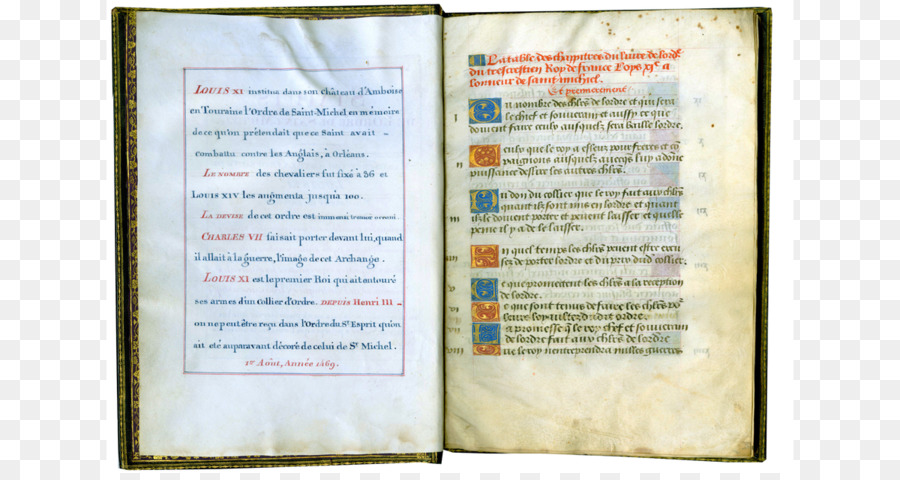 LOUIS XI institua dans son château d'Amboise
en Touraine l'Ordre de Saint-Michel en mémoire
de ce qu'on prétendait que ce Saint avait -
combattu contre les Anglais, à Orléans.
LE NOMBRE des chevaliers fut fixé à 36 et
LOUIS XIV les augmenta jusqu'à 100.
LA DEVISE de cet ordre est immensi tremor oceani.
CHARLES VII faisait porter devant lui, quand
il allait à la guerre, l'image de cet Archange.
LOUIS XI est le premier Roi qui ait entouré
ses armes d'un collier d'Ordre. DEPUIS Henri III -
on ne peut être reçu dans l'Ordre du St Esprit qu'on
ait eté auparavant décoré de celui de St Michel.
1er Août, Année 1469.
La table des chapitres du livre de lordre
du trescrestien Roy de france Loys xje a
lonneur de saint michiel.
Et premierement
I
Du nombre des chlrs de lordre et qui sera
le chief et souverain et aussy ce que
doivent faire ceulx ausquelz sera baille lordre.
II
Ceulx que le roy a esleuz pour freres et
compaignons ausquelz avecques luy a donc
puissance deslire les autres chlrs.
III
Du don du collier que le roy fait aux chlrs
quant ilz sont mis en lordre et quant
ilz le doivent porter et peuvent laisser et quelle
peine il y a de le laisser.
En quel temps les chlrs peuent estre
de porter lordre et du pris dudit collier.
Ce que promettent les chlrs a la reception
de lordre.
Ce que sont tenus de faire les chlrs
dudit ordre.
La promesse que le roy chef et souverain
de lordre fait aux chlrs de lordre
Que le roy nentreprendra nulles guerres